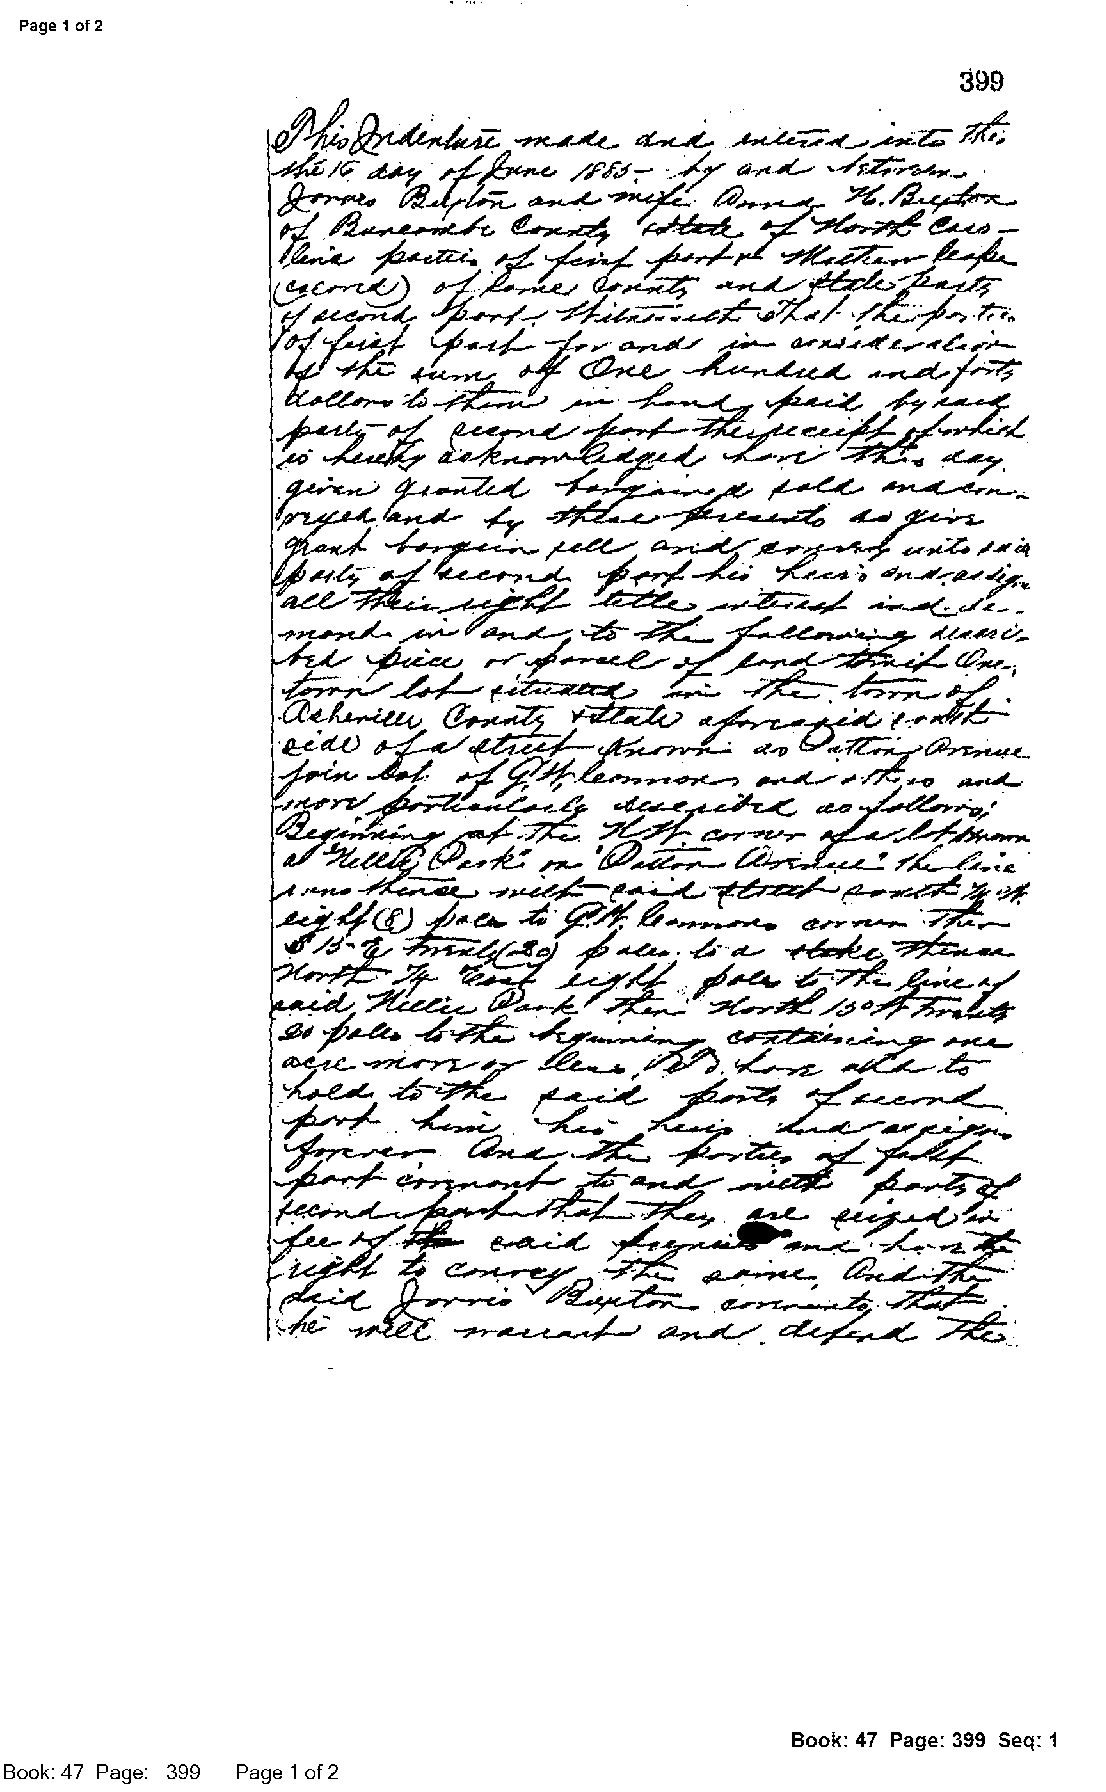 Page 1 of 2
399
This Indenture made and entered into this
the 15 day of June 1885- by and between
Jarvis Buxton and wife Anna N. Buxton
of Buncombe County & State of North Caro-
lina parties of first part & Mathew
(colored) of same County and State party
of second part. Witnesseth That the parties
of first part for and in consideration
of the sum of One hundred and forty
dollars to them in hand paid by said
party of second part the receipt of which
is hereby acknowledged have this day
given granted bargained sold and con-
veyed and by these presents do give
grant bargain sell and convey unto said
party of second part his heirs and assigns
all their right title interest and de-
mand in and to the following descri-
bed piece or parcel of land towit One
town lot situated in the town of
Asheville County & State aforesaid south
side of a street Known as Patton Avenue
join lot of G.W. Cannon and others and
more particularly described as follows;
Beginning at the N.W. corner of a lot known
as "Nellie Park" on "Patton Avenue" the line
runs thence with said street south 74 W.
eight (8) poles to G.W. Cannons corner then
S 15- E twenty (20) poles to a stake thence
North 74 East eight poles to the line of
said Nellie Park then North 15° W twenty
20 poles to the beginning containing one
acre more or less. To have and to
hold to the said party of second
part him his heirs and assigns
forever And the parties of first
part covenant to and with party of
second part that they are seized in
fee of the said premises and have the
right to convey the same. And the
said Jarvis Buxton covenants that
he will warrant and defend the
Book: 47 Page: 399 Seq: 1
Book: 47 Page: 399 Page 1 of 2